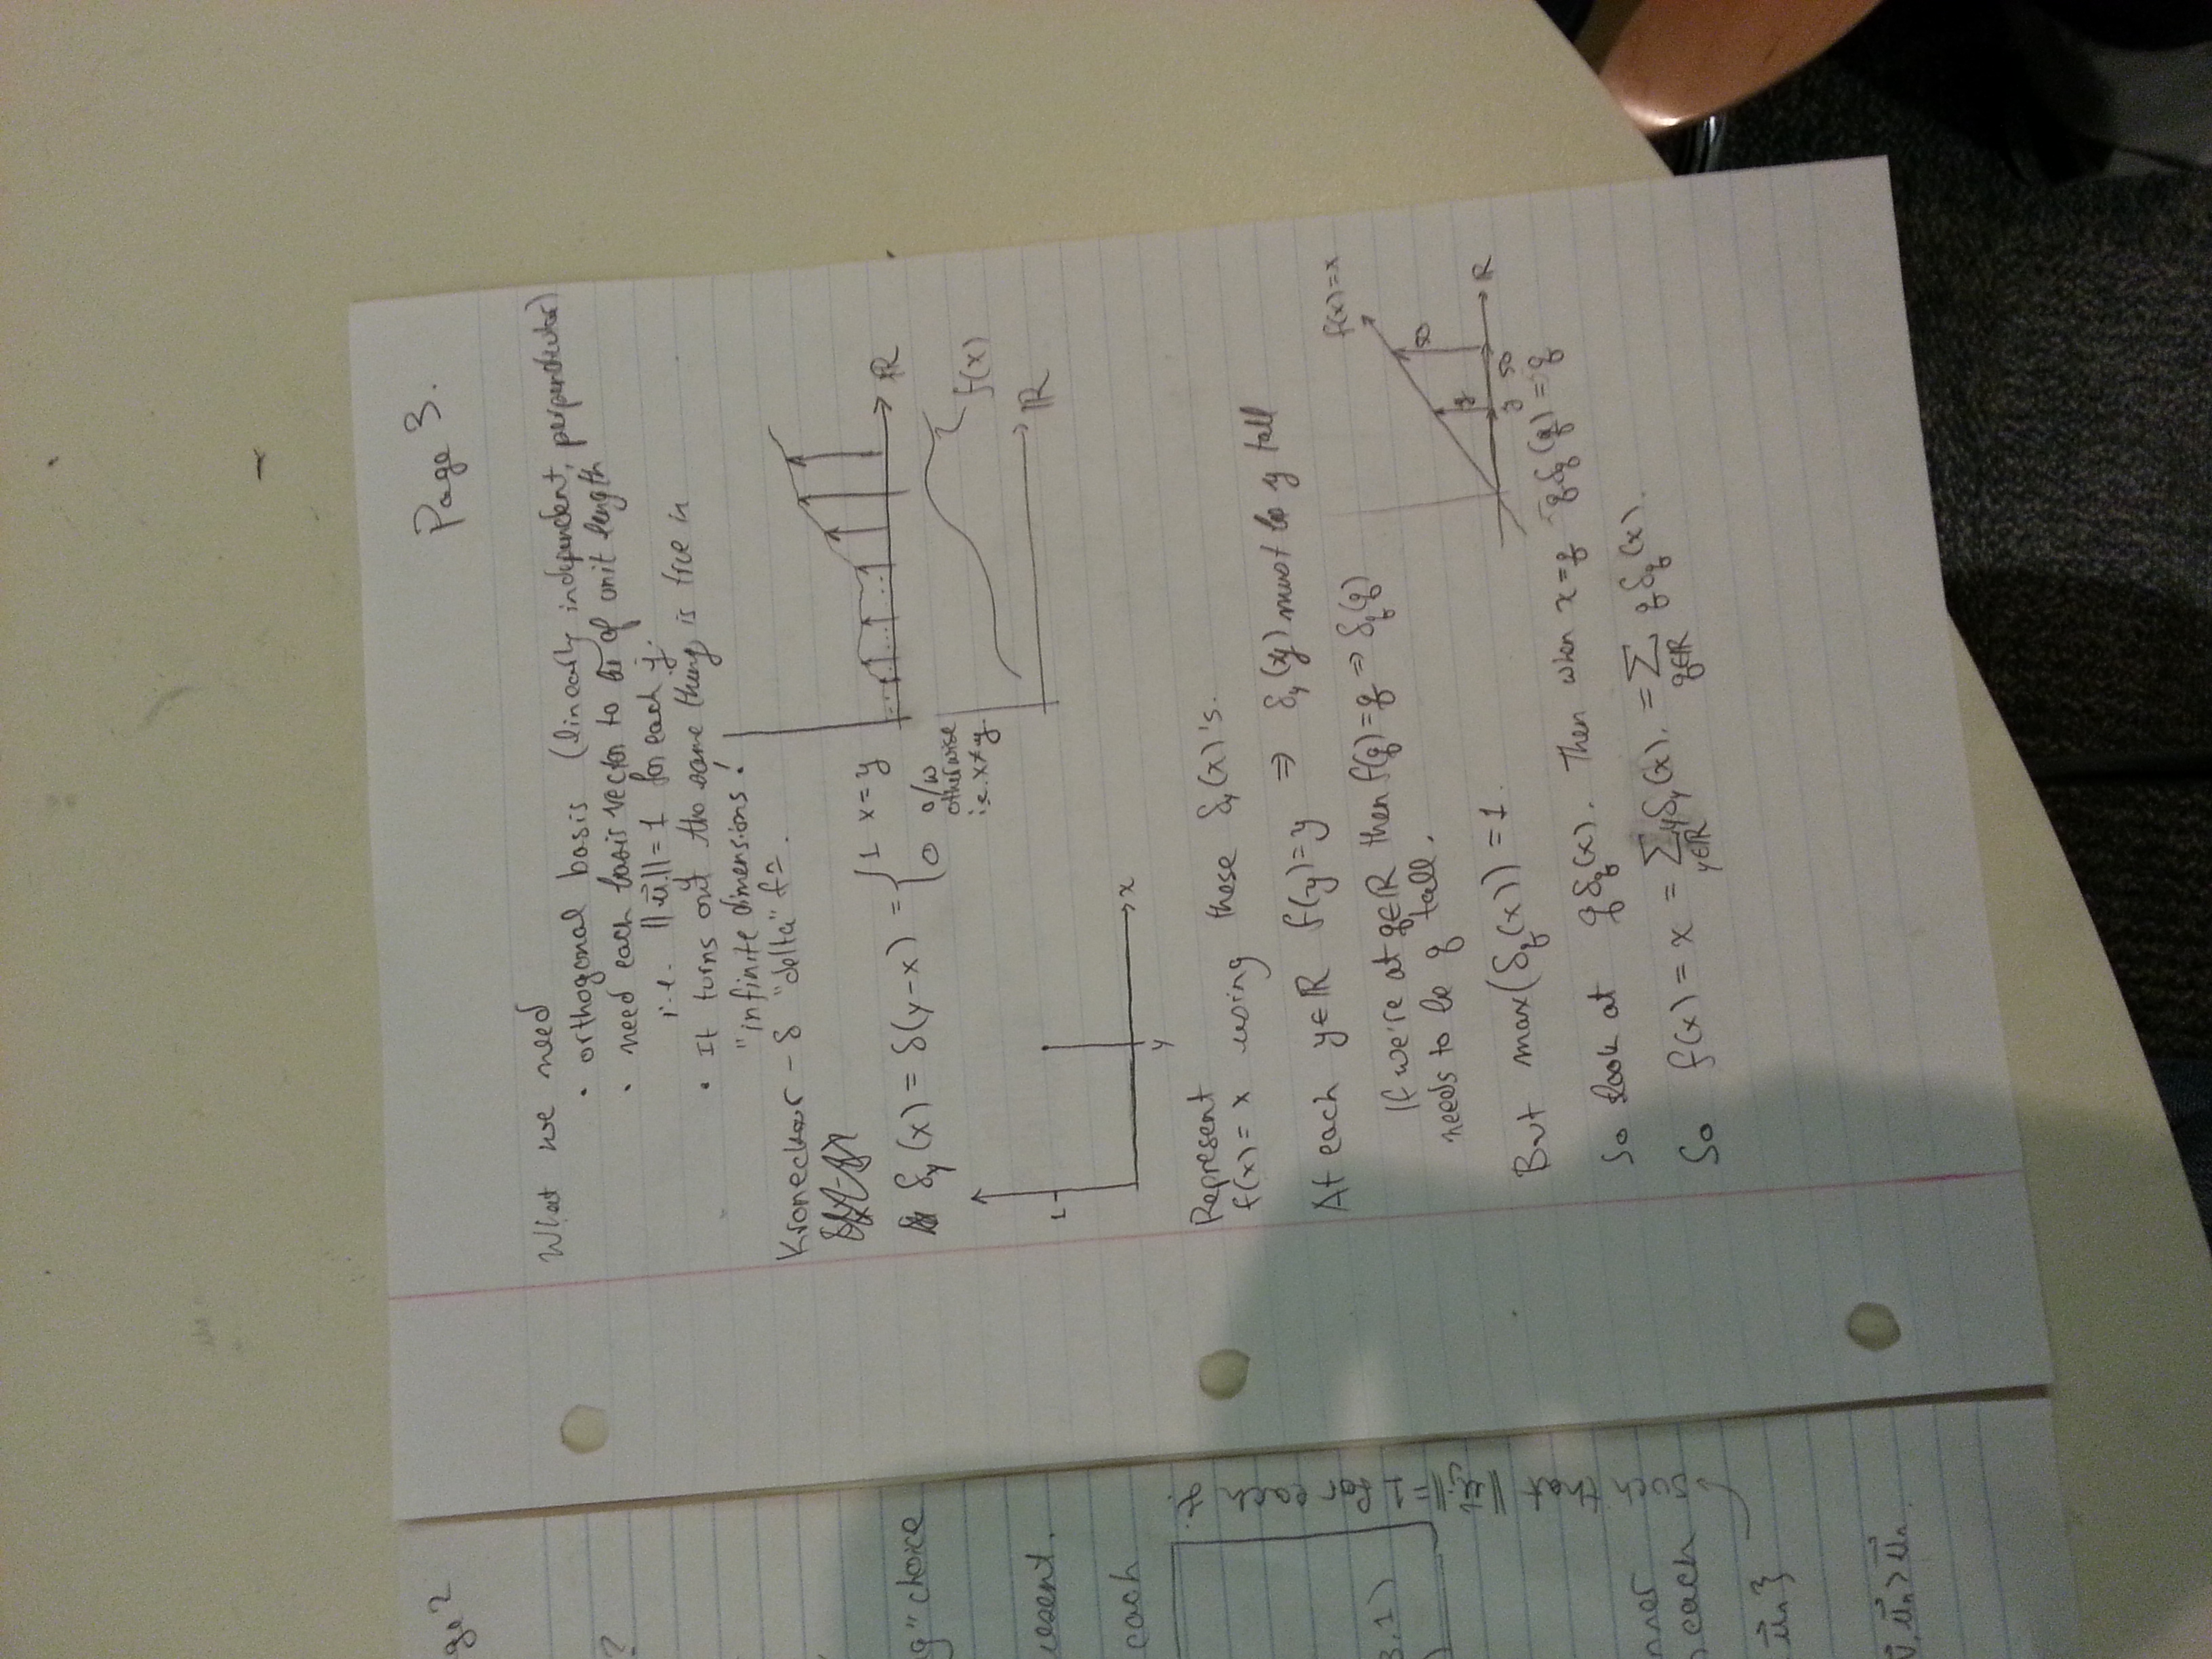 Page 3.
What we need
• orthogonal basis (linearly independent, perpendicular)
• need each basis vector to be of unit length
i.e. ||u⃗ᵢ|| = 1 for each i.
• It turns out the same thing is true in
"infinite dimensions!
Kronecker - δ "delta" f=.
δ_y(x) = δ(y-x) = { 1 x=y
0 o/w
otherwise
i.e. x≠y
ℝ
f(x)
ℝ
1
y
x
Represent
f(x) = x using these δ_y(x)'s.
At each y∈ℝ f(y)=y ⇒ δ_y(y) must be y tall
If we're at q∈ℝ then f(q)=q ⇒ δ_q(q)
needs to be q tall.
f(x)=x
y
50
y
50
ℝ
But max(δ_q(x)) = 1.
So look at qδ_q(x). Then when x=q qδ_q(q) = q
So f(x) = x = Σ_{y∈ℝ} yδ_y(x). = Σ_{q∈ℝ} qδ_q(x).
ge 2
?
g" choice
resent.
each
3.1)
nner
each
u⃗ₙ}
v⃗, u⃗ₙ> u⃗ₙ